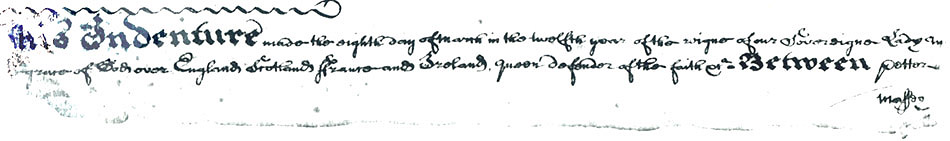 This Indenture made the eighth day of March in the twelfth year of the reigne of our Sovereigne Lady
grace of God over England Scotland France and Ireland, Queen defender of the faith &c Between Petter
Massey